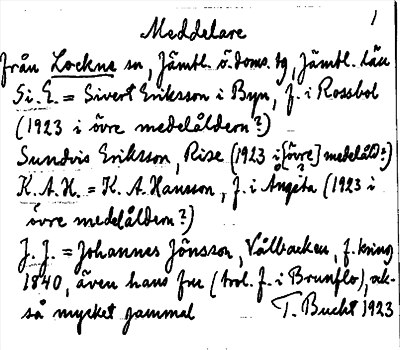 1
Meddelare
från Lockne sn, Jämtl. ö. doms. tg, Jämtl. län
Si. E. = Sivert Eriksson i Byn, f. i Rossbol
(1923 i övre medelåldern?)
Sundvis Eriksson, Rise (1923 i [övre?] medelåld.?)
K. A. H. = K. A. Hansson, f. i Ångsta (1923 i
övre medelåldern?)
J. J. = Johannes Jönsson, Vålbacken, f. kring
1840, även hans fru (trol. f. i Brunflo), ock-
så mycket gammal T. Bucht 1923